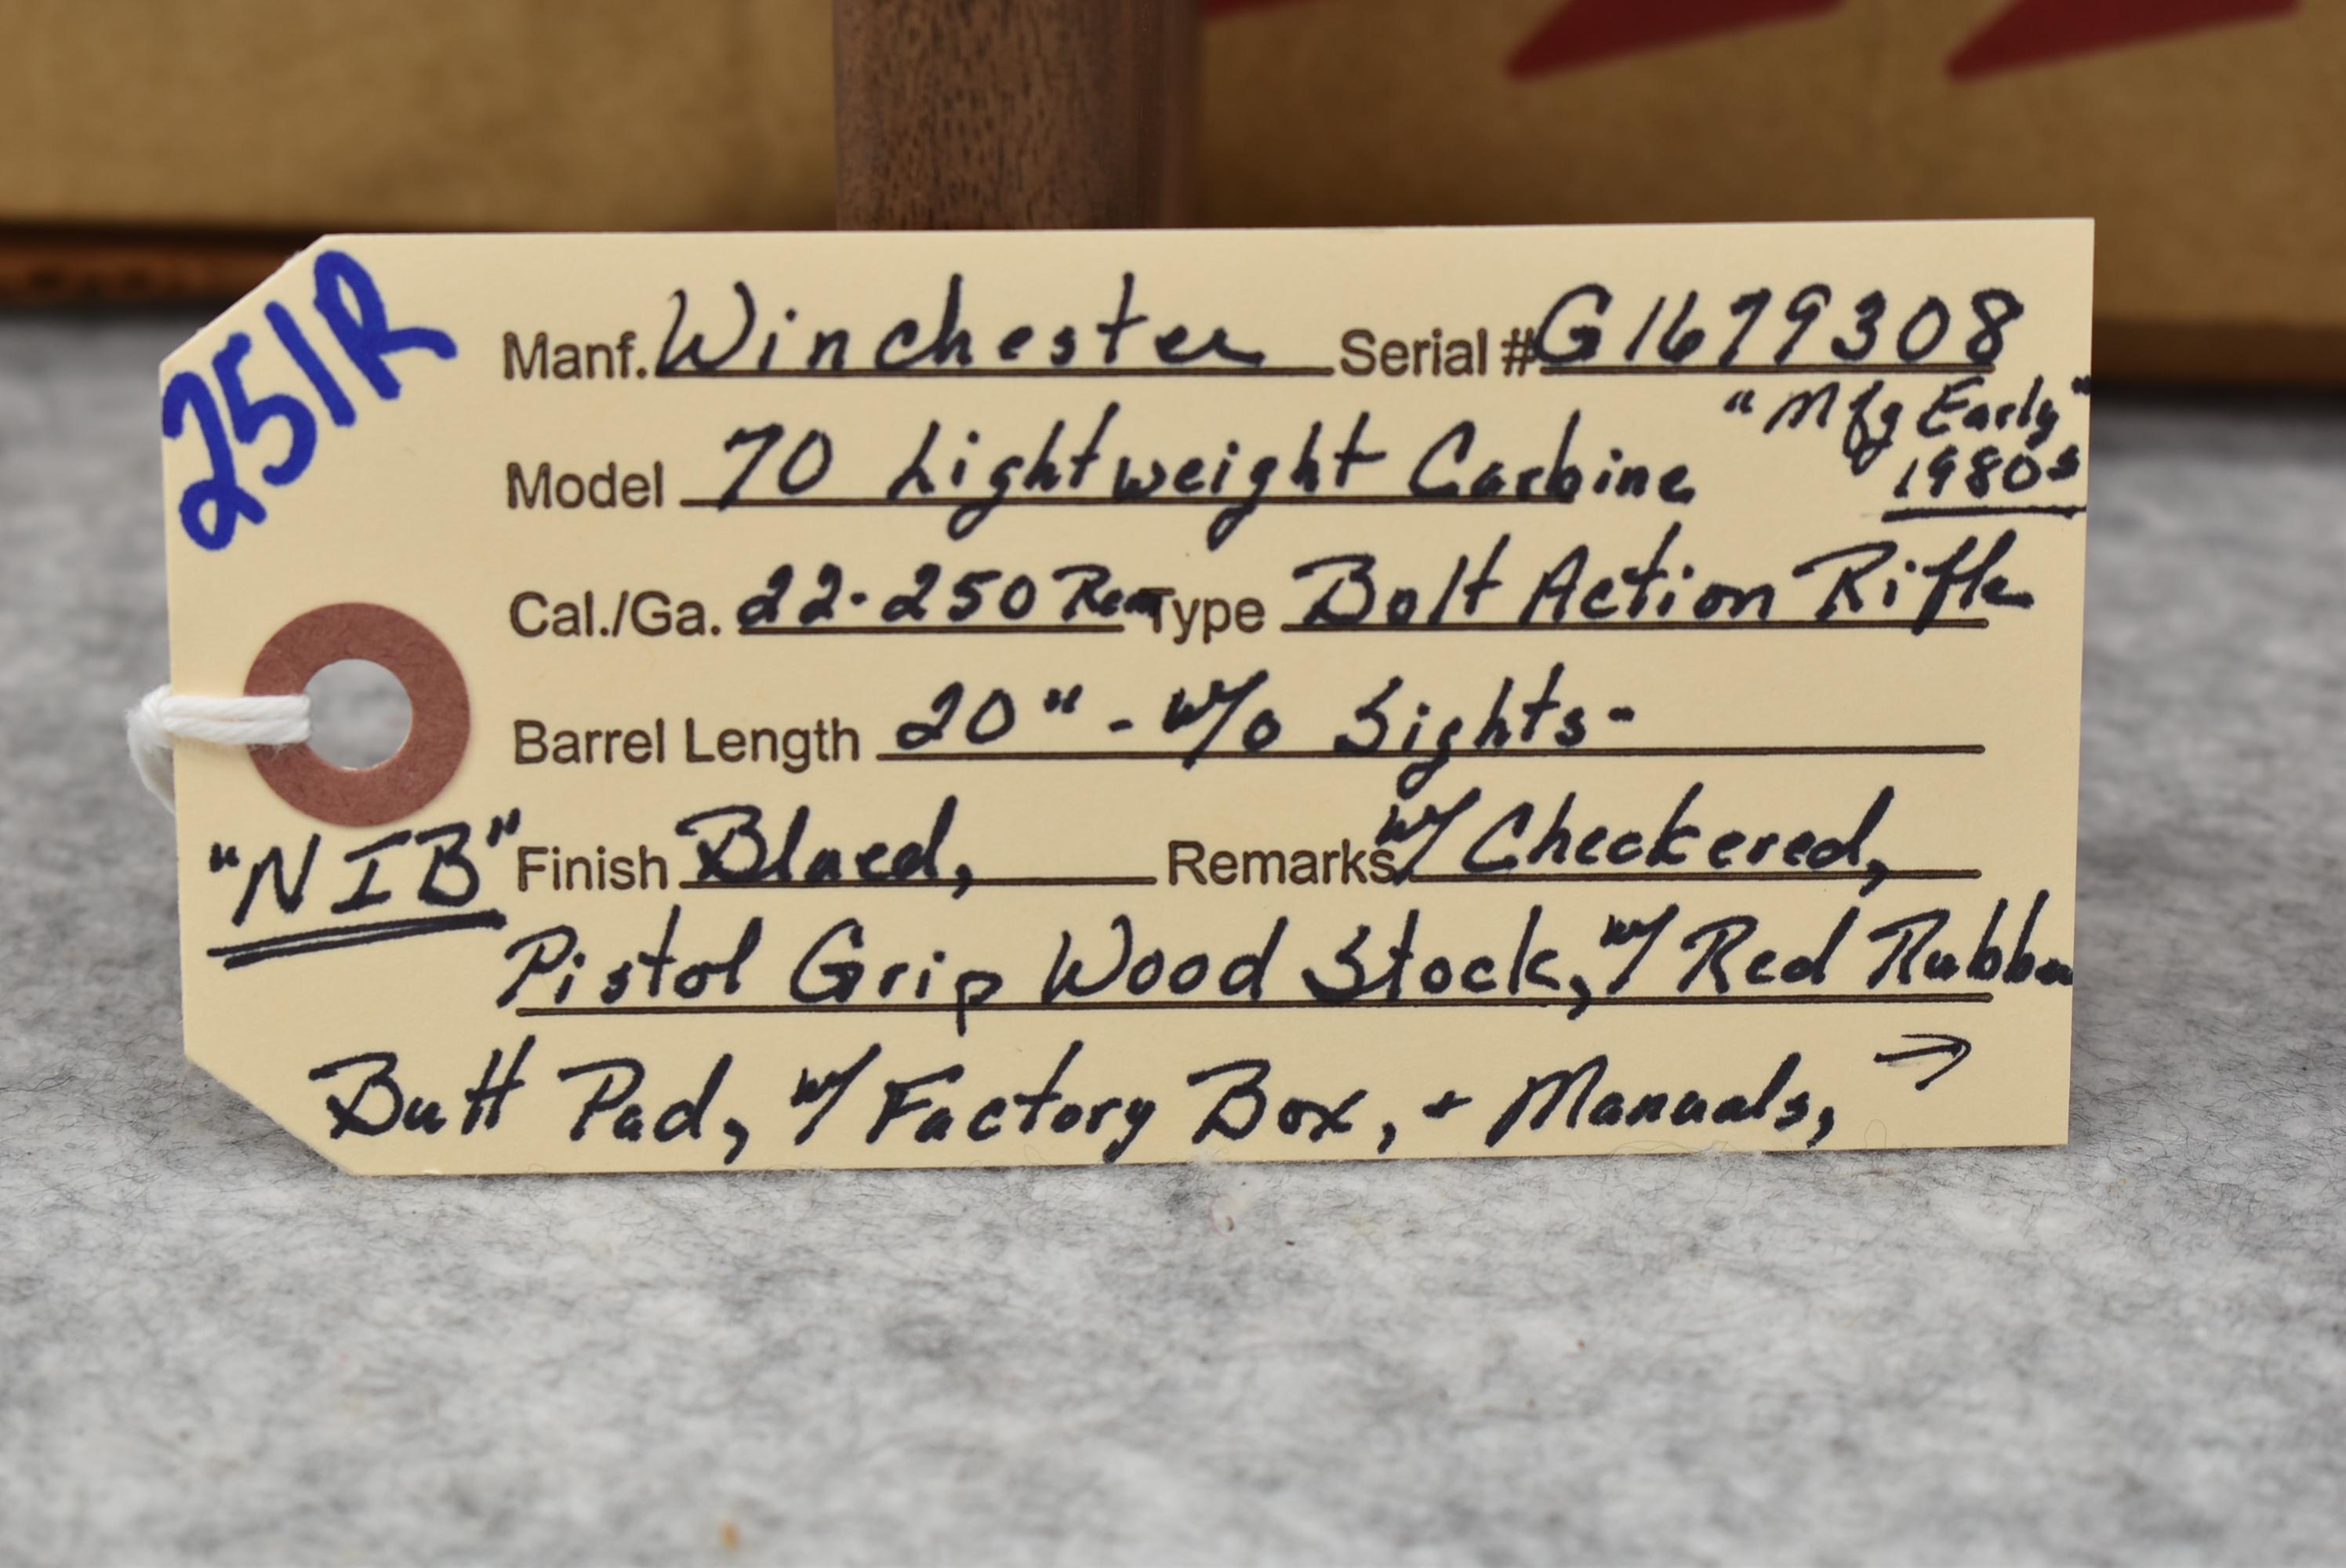 251R
Manf. Winchester Serial # G1679308
"Mfg Early"
1980s
Model 70 Lightweight Carbine
Cal./Ga. 22-250 Rem Type Bolt Action Rifle
Barrel Length 20" - w/o Sights-
"NIB" Finish Blued, Remarks w/ Checkered,
Pistol Grip Wood Stock, w/ Red Rubber
Butt Pad, w/ Factory Box, + Manuals, →